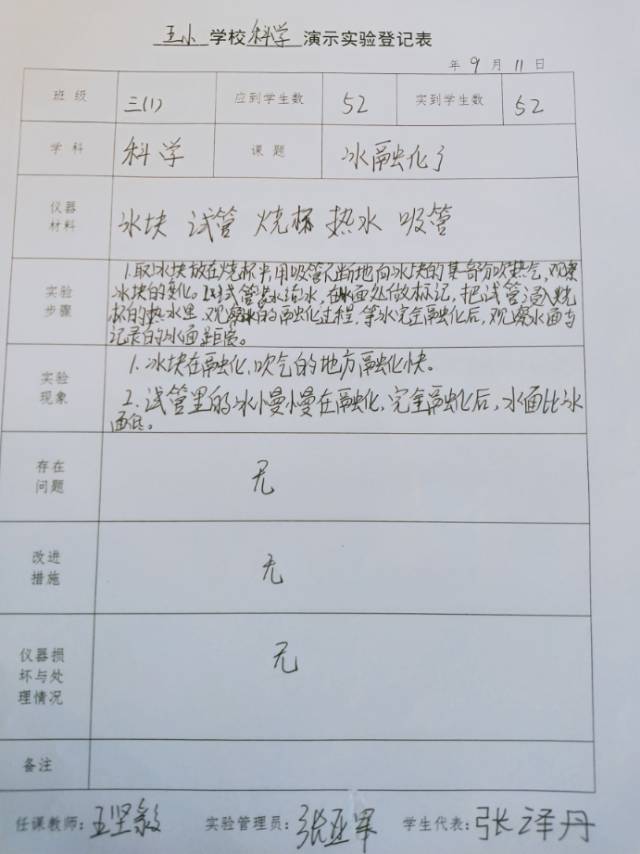 王小学校科学演示实验登记表
年 9 月 11 日
班 级 三(1) 应到学生数 52 实到学生数 52
学 科 科学 课 题 冰融化了
仪器材料 冰块 试管 烧杯 热水 吸管
实验步骤
1.取冰块放在烧杯中用吸管不断地向冰块的某部分吹热气,观察
冰块的变化。2.试管装水结冰,在冰面处做标记,把试管通入烧
杯的热水里,观察冰的融化过程,等冰完全融化后,观察水面与
记录的冰面距离。
实验现象
1.冰块在融化,吹气的地方融化快。
2.试管里的冰慢慢在融化,完全融化后,水面比冰
面低。
存在问题 无
改进措施 无
仪器损坏与处理情况 无
备注
任课教师:王坚毅 实验管理员:张亚军 学生代表:张译丹